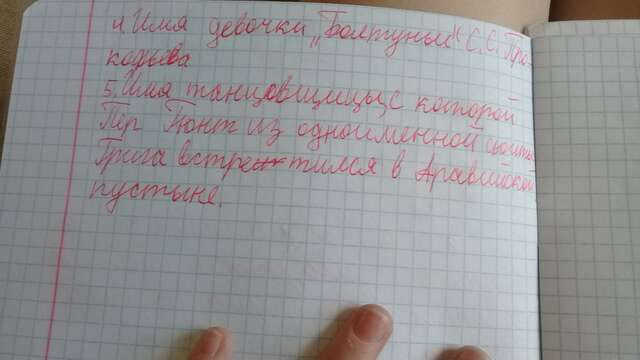 4. Имя девочки „Болтуньи“ С.С. Про-
кофьева
5. Имя танцовщицы, с которой
Пер Гюнт из одноименной сюиты
Грига встретился в Аравийской
пустыне.